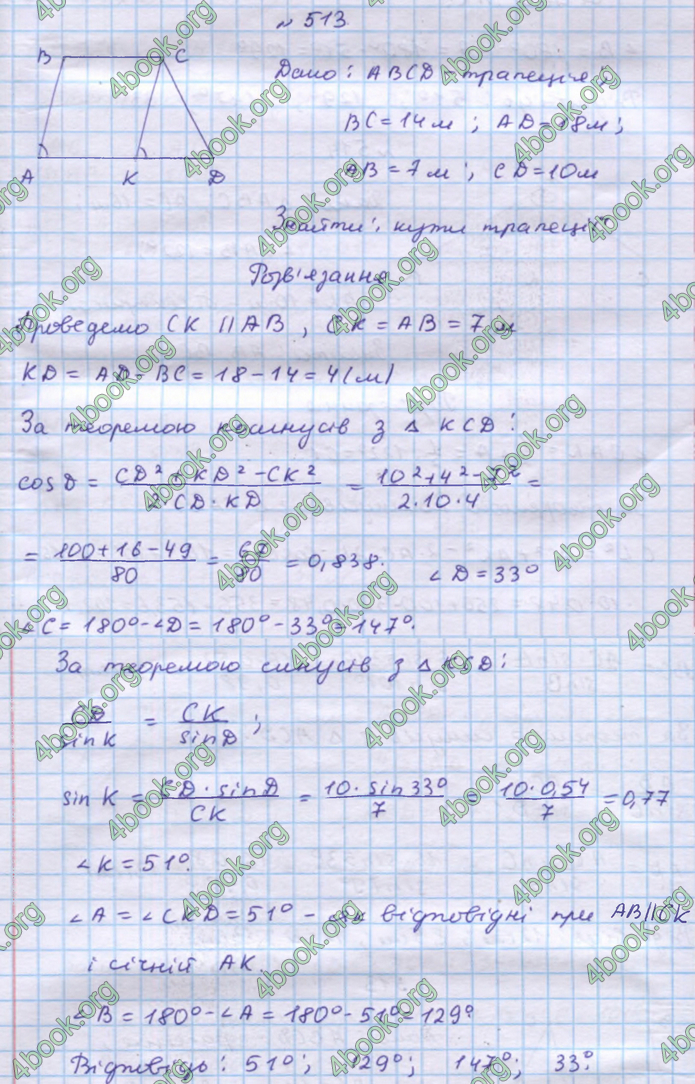 № 513
B C
A K D
Дано: ABCD – трапеція
BC = 14 м ; AD = 18 м ;
AB = 7 м ; CD = 10 м
Знайти: кути трапеції
Розв'язання
Проведемо CK || AB , CK = AB = 7 м
KD = AD - BC = 18 - 14 = 4 (м)
За теоремою косинусів з △ KCD :
cos D = (CD² + KD² - CK²) / (2·CD·KD) = (10² + 4² - 7²) / (2·10·4) =
= (100 + 16 - 49) / 80 = 67 / 80 = 0,838. ∠D = 33°
∠C = 180° - ∠D = 180° - 33° = 147°.
За теоремою синусів з △ KCD :
CD / sin K = CK / sin D ;
sin K = (CD · sin D) / CK = (10 · sin 33°) / 7 = (10 · 0,54) / 7 = 0,77
∠K = 51°.
∠A = ∠CKD = 51° – як відповідні при AB || CK
і січній AK.
∠B = 180° - ∠A = 180° - 51° = 129°
Відповідь : 51° ; 129° ; 147° ; 33°.
4book.org